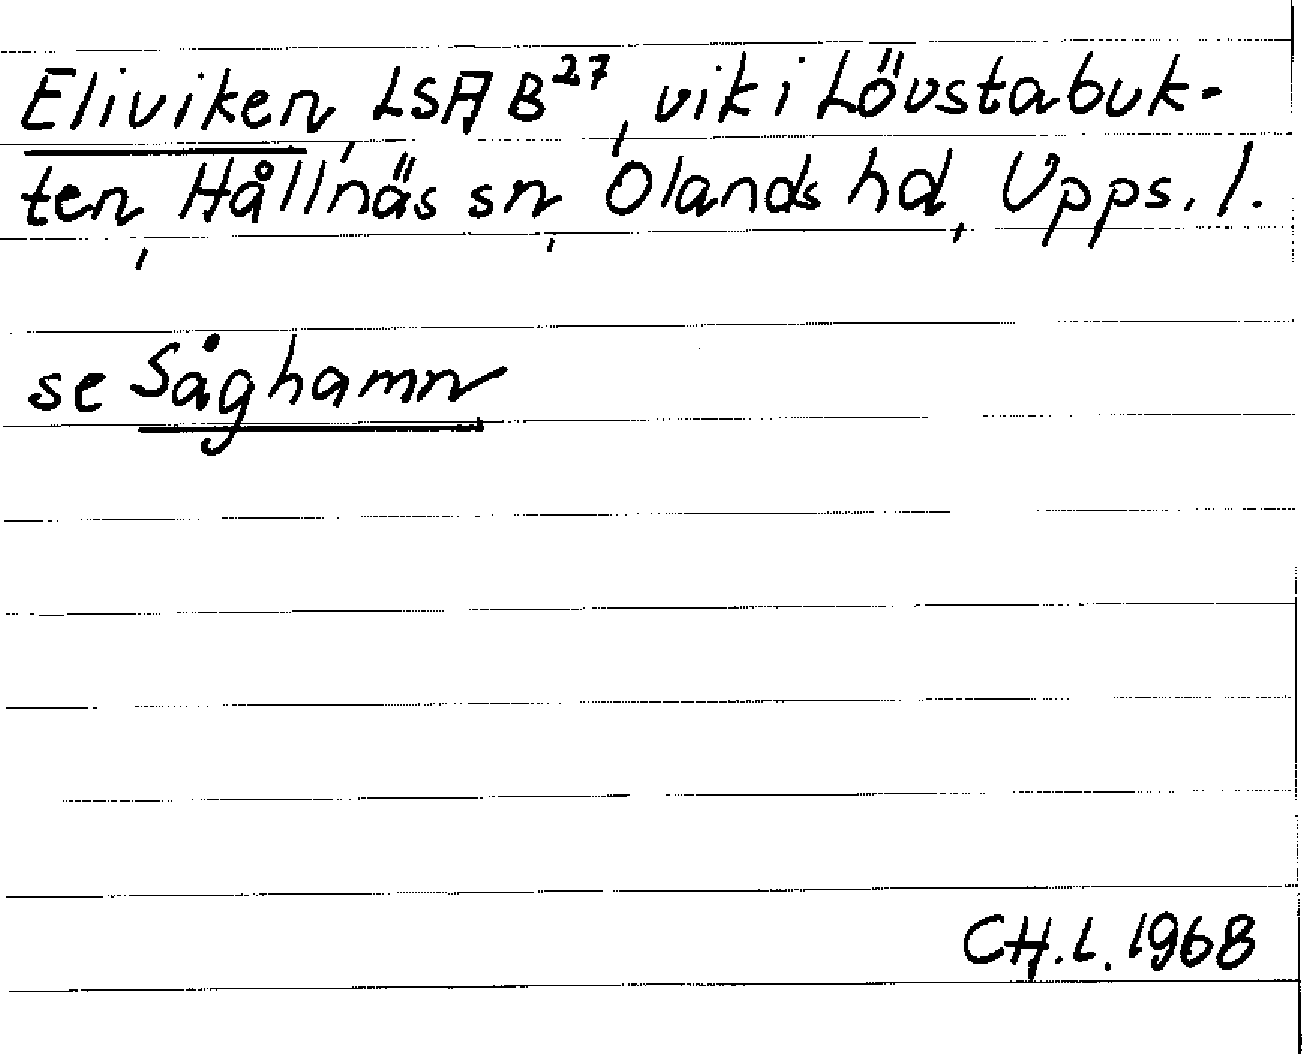 Eliviken, LSA B27, vik i Lövstabuk-
ten, Hållnäs sn, Olands hd, Upps. l.
se Såghamn
CH. L. 1968